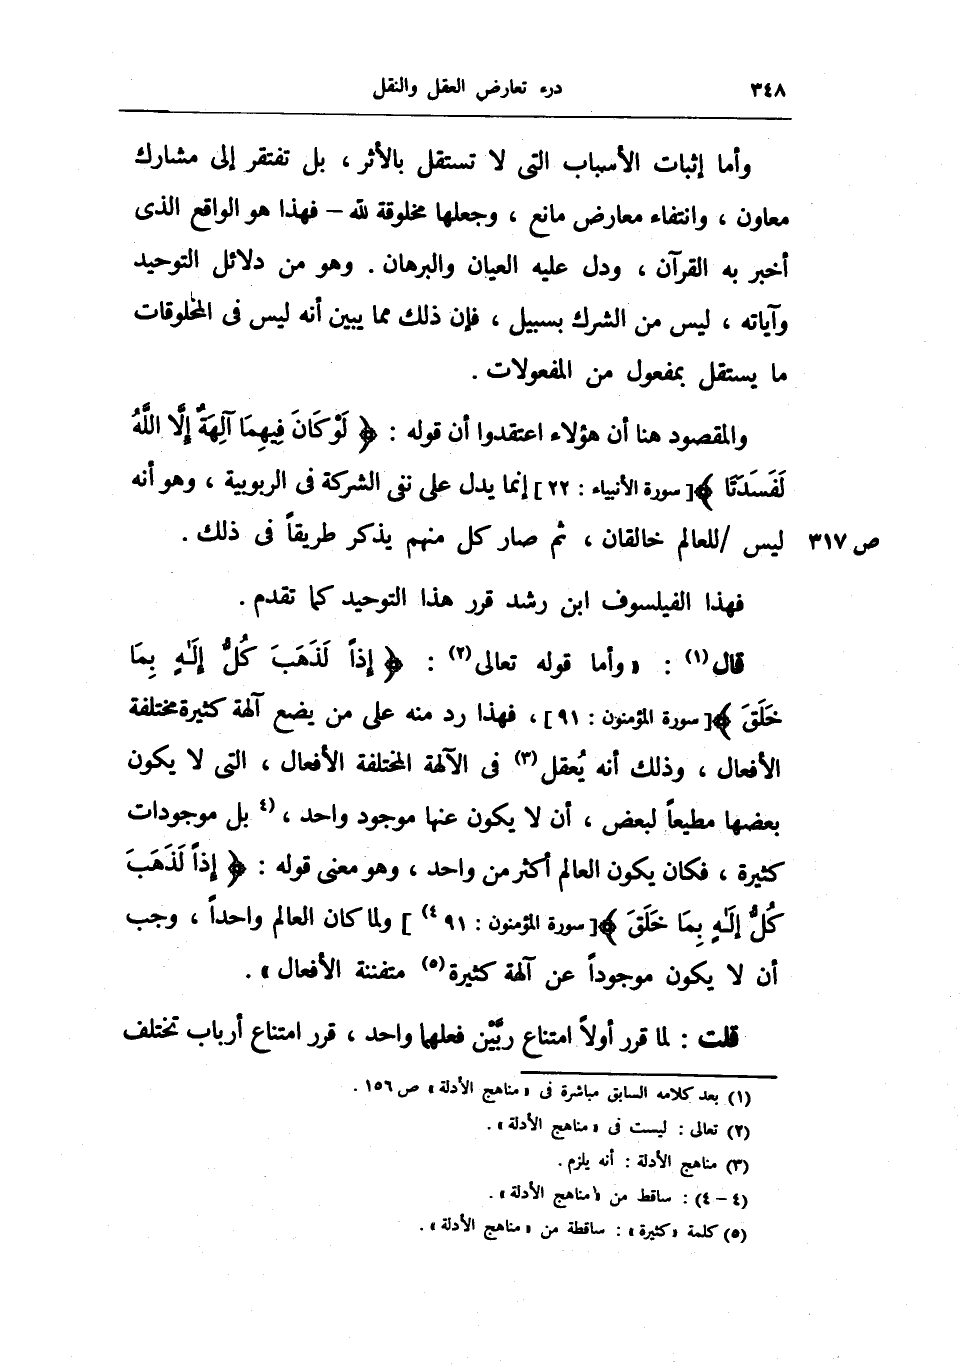 ٣٤٨ درء تعارض العقل والنقل
وأما إثبات الأسباب التى لا تستقل بالأثر ، بل تفتقر إلى مشارك
معاون ، وانتفاء معارض مانع ، وجعلها مخلوقة لله – فهذا هو الواقع الذى
أخبر به القرآن ، ودل عليه العيان والبرهان . وهو من دلائل التوحيد
وآياته ، ليس من الشرك بسبيل ، فإن ذلك مما يبين أنه ليس فى المخلوقات
ما يستقل بمفعول من المفعولات .
والمقصود هنا أن هؤلاء اعتقدوا أن قوله : ﴿ لَوْ كَانَ فِيهِمَا آلِهَةٌ إِلَّا اللَّهُ
لَفَسَدَتَا ﴾ [ سورة الأنبياء : ٢٢ ] إنما يدل على نفى الشركة فى الربوبية ، وهو أنه
ص ٣١٧ ليس /للعالم خالقان ، ثم صار كل منهم يذكر طريقاً فى ذلك .
فهذا الفيلسوف ابن رشد قرر هذا التوحيد كما تقدم .
قال(١) : « وأما قوله تعالى(٢) : ﴿ إِذاً لَذَهَبَ كُلُّ إِلَـٰهٍ بِمَا
خَلَقَ ﴾ [ سورة المؤمنون : ٩١ ] ، فهذا رد منه على من يضع آلهة كثيرة مختلفة
الأفعال ، وذلك أنه يُعقل(٣) فى الآلهة المختلفة الأفعال ، التى لا يكون
بعضها مطيعاً لبعض ، أن لا يكون عنها موجود واحد ، (٤ بل موجودات
كثيرة ، فكان يكون العالم أكثر من واحد ، وهو معنى قوله : ﴿ إِذاً لَذَهَبَ
كُلُّ إِلَـٰهٍ بِمَا خَلَقَ ﴾ [ سورة المؤمنون : ٩١ ٤) ] ولما كان العالم واحداً ، وجب
أن لا يكون موجوداً عن آلهة كثيرة(٥) متفننة الأفعال » .
قلت : لما قرر أولاً امتناع ربَّيْن فعلهما واحد ، قرر امتناع أرباب تختلف
(١) بعد كلامه السابق مباشرة فى « مناهج الأدلة » ص ١٥٦ .
(٢) تعالى : ليست فى « مناهج الأدلة » .
(٣) مناهج الأدلة : أنه يلزم .
(٤ – ٤) : ساقط من « مناهج الأدلة » .
(٥) كلمة « كثيرة » : ساقطة من « مناهج الأدلة » .